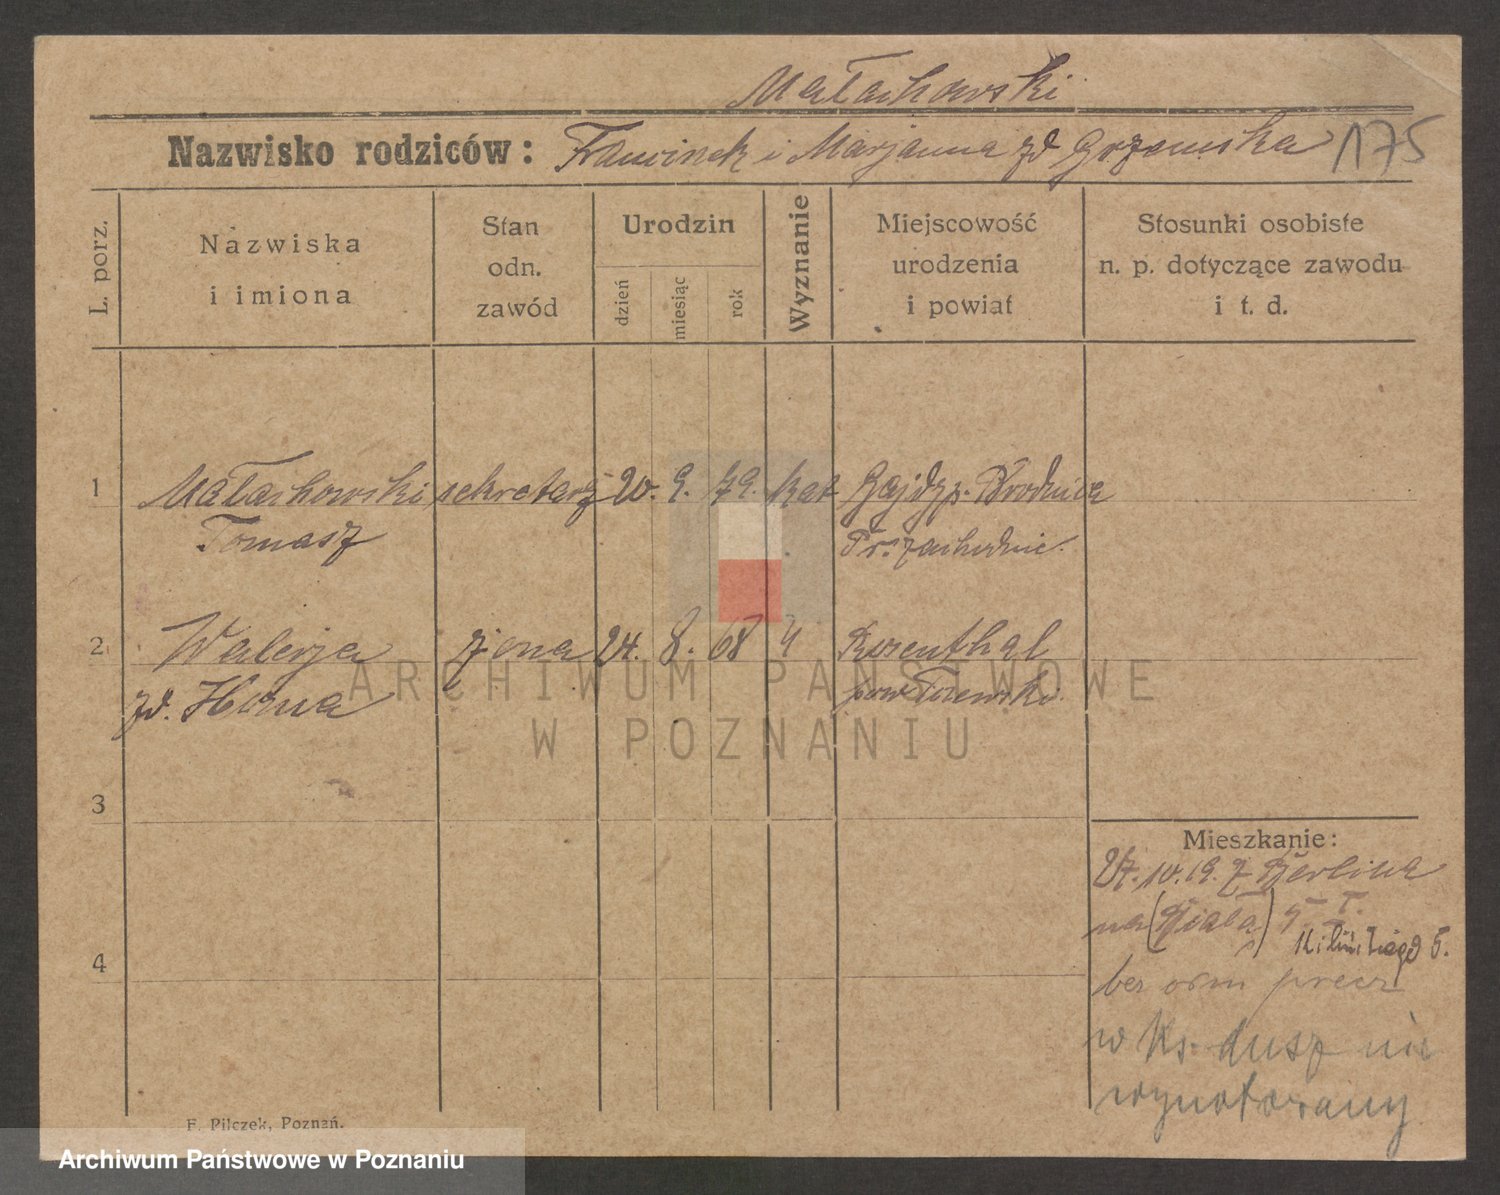 Małachowski
Nazwisko rodziców: Franciszek i Marjanna zd Grzemska 175
L. porz.
Nazwiska
i imiona
Stan
odn.
zawód
Urodzin
dzień
miesiąc
rok
Wyznanie
Miejscowość
urodzenia
i powiat
Stosunki osobiste
n. p. dotyczące zawodu
i t. d.
1 Małachowski sekretarz 20. 9. 79. kat Gajdy p. Brodnica
Tomasz Pr. zachodnie.
2 Walerja żona 24. 8. 68 " Rosenthal
zd. pow
ARCHIWUM PAŃSTWOWE
W POZNANIU
3
Mieszkanie:
27. 10. 19. z Berlina
na (Biała) 5.
4
bez precz
w ks. dusz nie
wynotowany
F. Pilczek, Poznań.
Archiwum Państwowe w Poznaniu